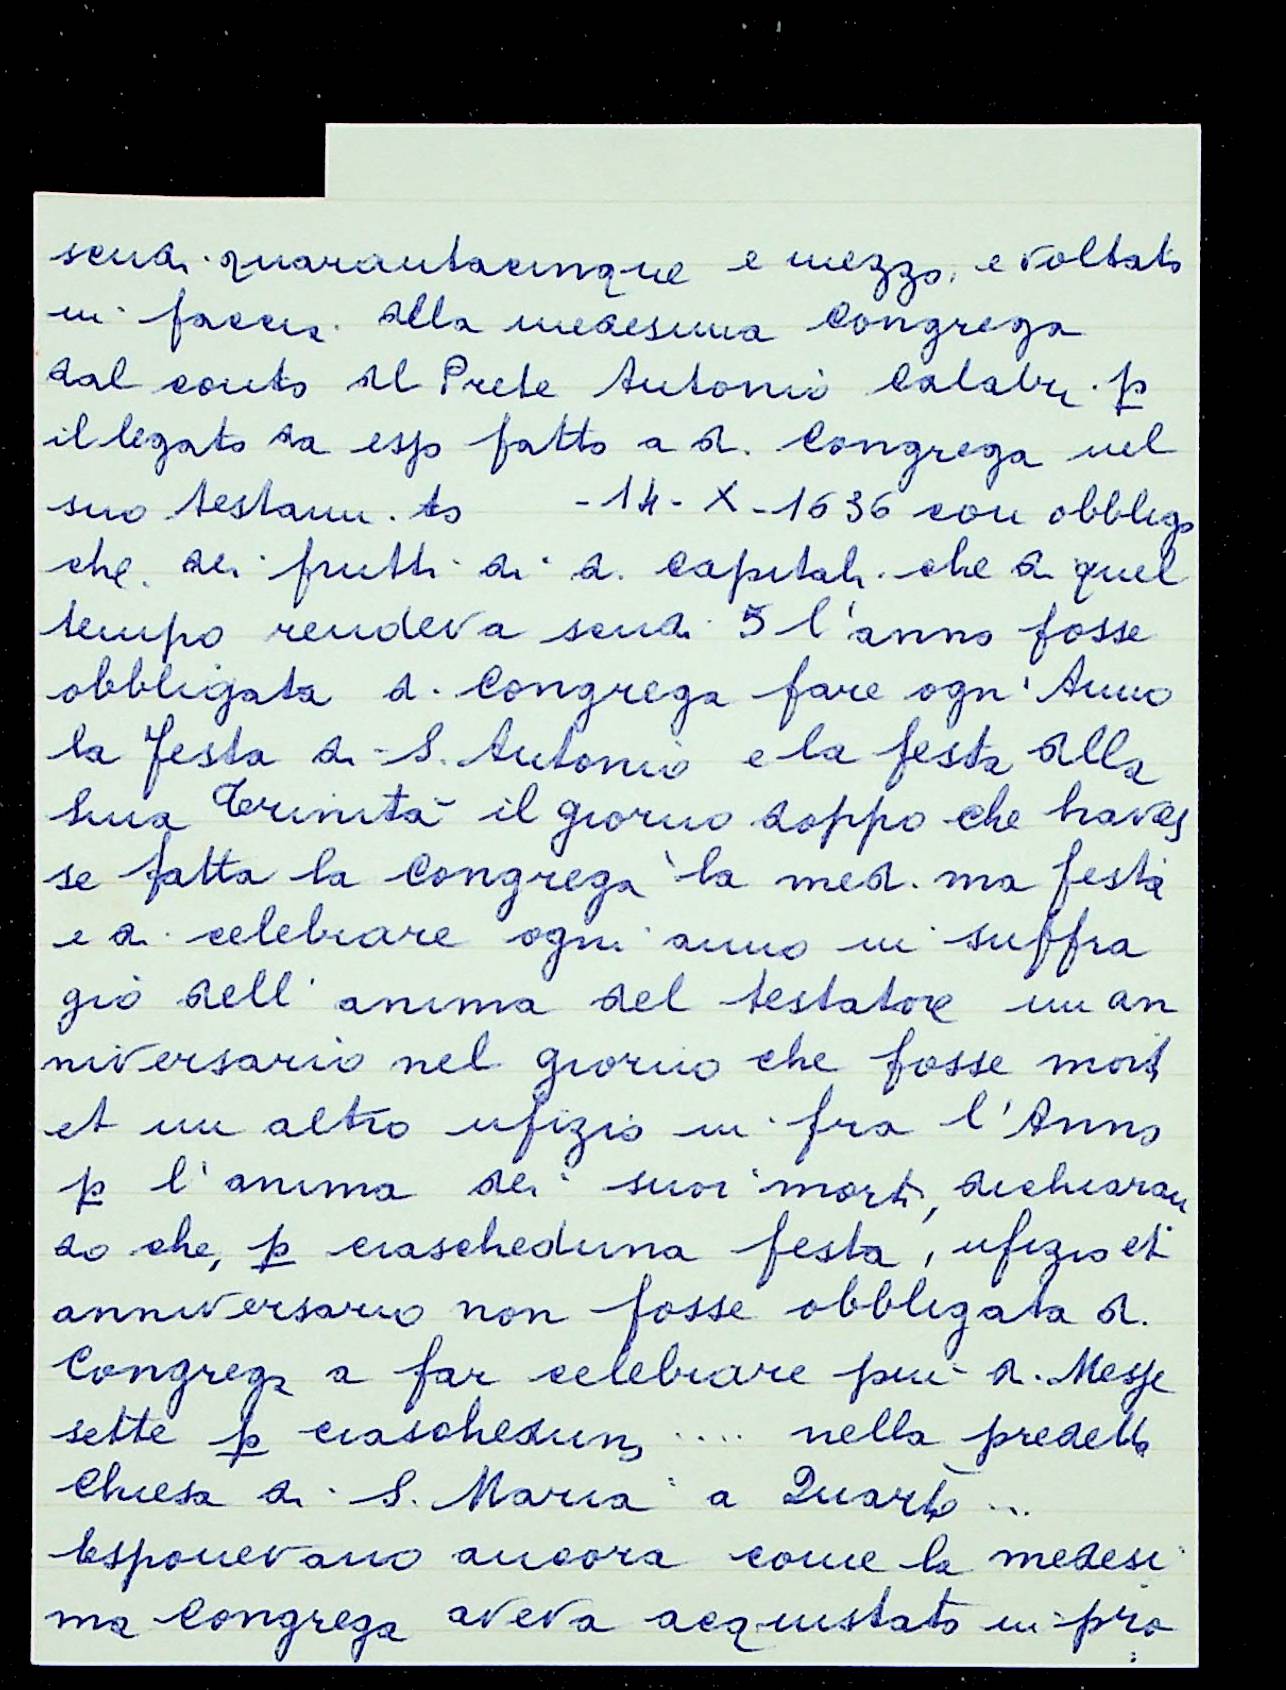 scudi quarantacinque e mezzo, e voltato
in faccia della medesima Congrega
dal conto del Prete Antonio Calabri p
il legato da esso fatto a d. Congrega nel
suo testam.to -14-X-1636 con obbligo
che dei frutti di d. capitali che di quel
tempo rendeva scudi 5 l'anno fosse
obbligata d. Congrega fare ogn'Anno
la festa di S. Antonio e la festa della
Sma Trinità il giorno doppo che haves
se fatta la Congrega la med.ma festa
e di celebrare ogni anno in suffra
gio dell'anima del testatore un an
niversario nel giorno che fosse morto
et un altro ufizio in fra l'Anno
p l'anima dei suoi morti, dichiaran
do che, p ciascheduna festa, ufizio et
anniversario non fosse obbligata d.
Congrega a far celebrare più d. Messe
sette p ciascheduno .... nella predetta
Chiesa di S. Maria a Quarto ...
Esponevano ancora come la medesi
ma Congrega aveva acquistato in pro